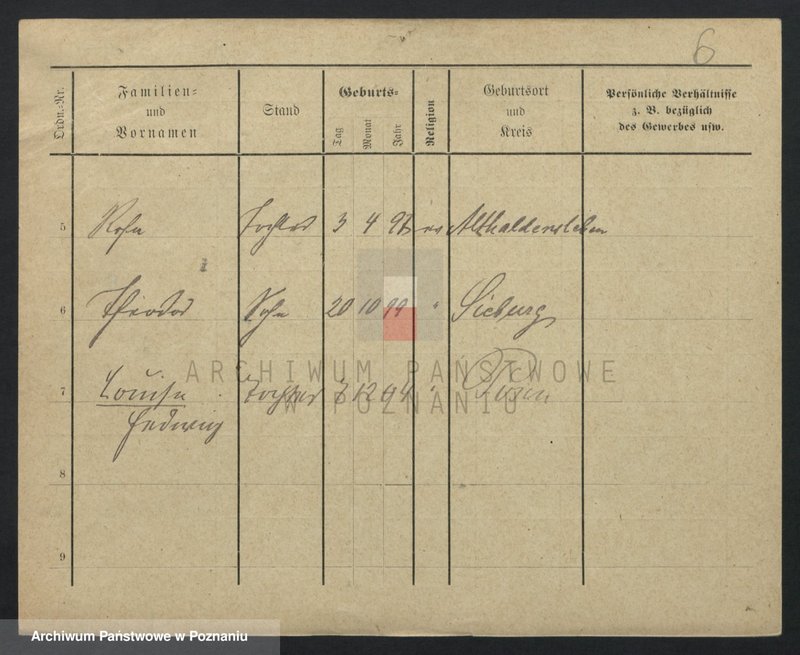 6
Ordn.-Nr.
Familien-
und
Vornamen
Stand
Geburts-
Tag
Monat
Jahr
Religion
Geburtsort
und
Kreis
Persönliche Verhältnisse
z. B. bezüglich
des Gewerbes usw.
5 Rosa Tochter 3 4 Althaldensleben
6 Theodor Sohn 20 10 99 " Sieburg
ARCHIWUM PAŃSTWOWE
W POZNANIU
7 Louise Tochter 7 12 04 " Posen
Hedwig
8
9
Archiwum Państwowe w Poznaniu